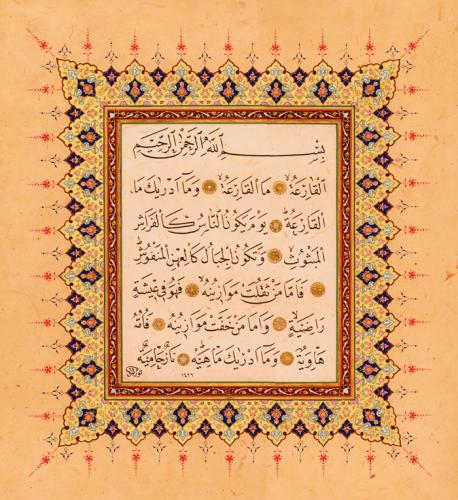 بِسْمِ اللهِ الرَّحْمٰنِ الرَّحِيمِ
اَلْقَارِعَةُ ۝ مَا الْقَارِعَةُ ۝ وَمَا اَدْرٰيكَ مَا
الْقَارِعَةُ ۝ يَوْمَ يَكُونُ النَّاسُ كَالْفَرَاشِ
الْمَبْثُوثِ ۝ وَتَكُونُ الْجِبَالُ كَالْعِهْنِ الْمَنْفُوشِ
۝ فَاَمَّا مَنْ ثَقُلَتْ مَوَازِينُهُ ۝ فَهُوَ فِى عِيشَةٍ
رَاضِيَةٍ ۝ وَاَمَّا مَنْ خَفَّتْ مَوَازِينُهُ ۝ فَاُمُّهُ
هَاوِيَةٌ ۝ وَمَا اَدْرٰيكَ مَاهِيَهْ ۝ نَارٌ حَامِيَةٌ
١٤٢٦